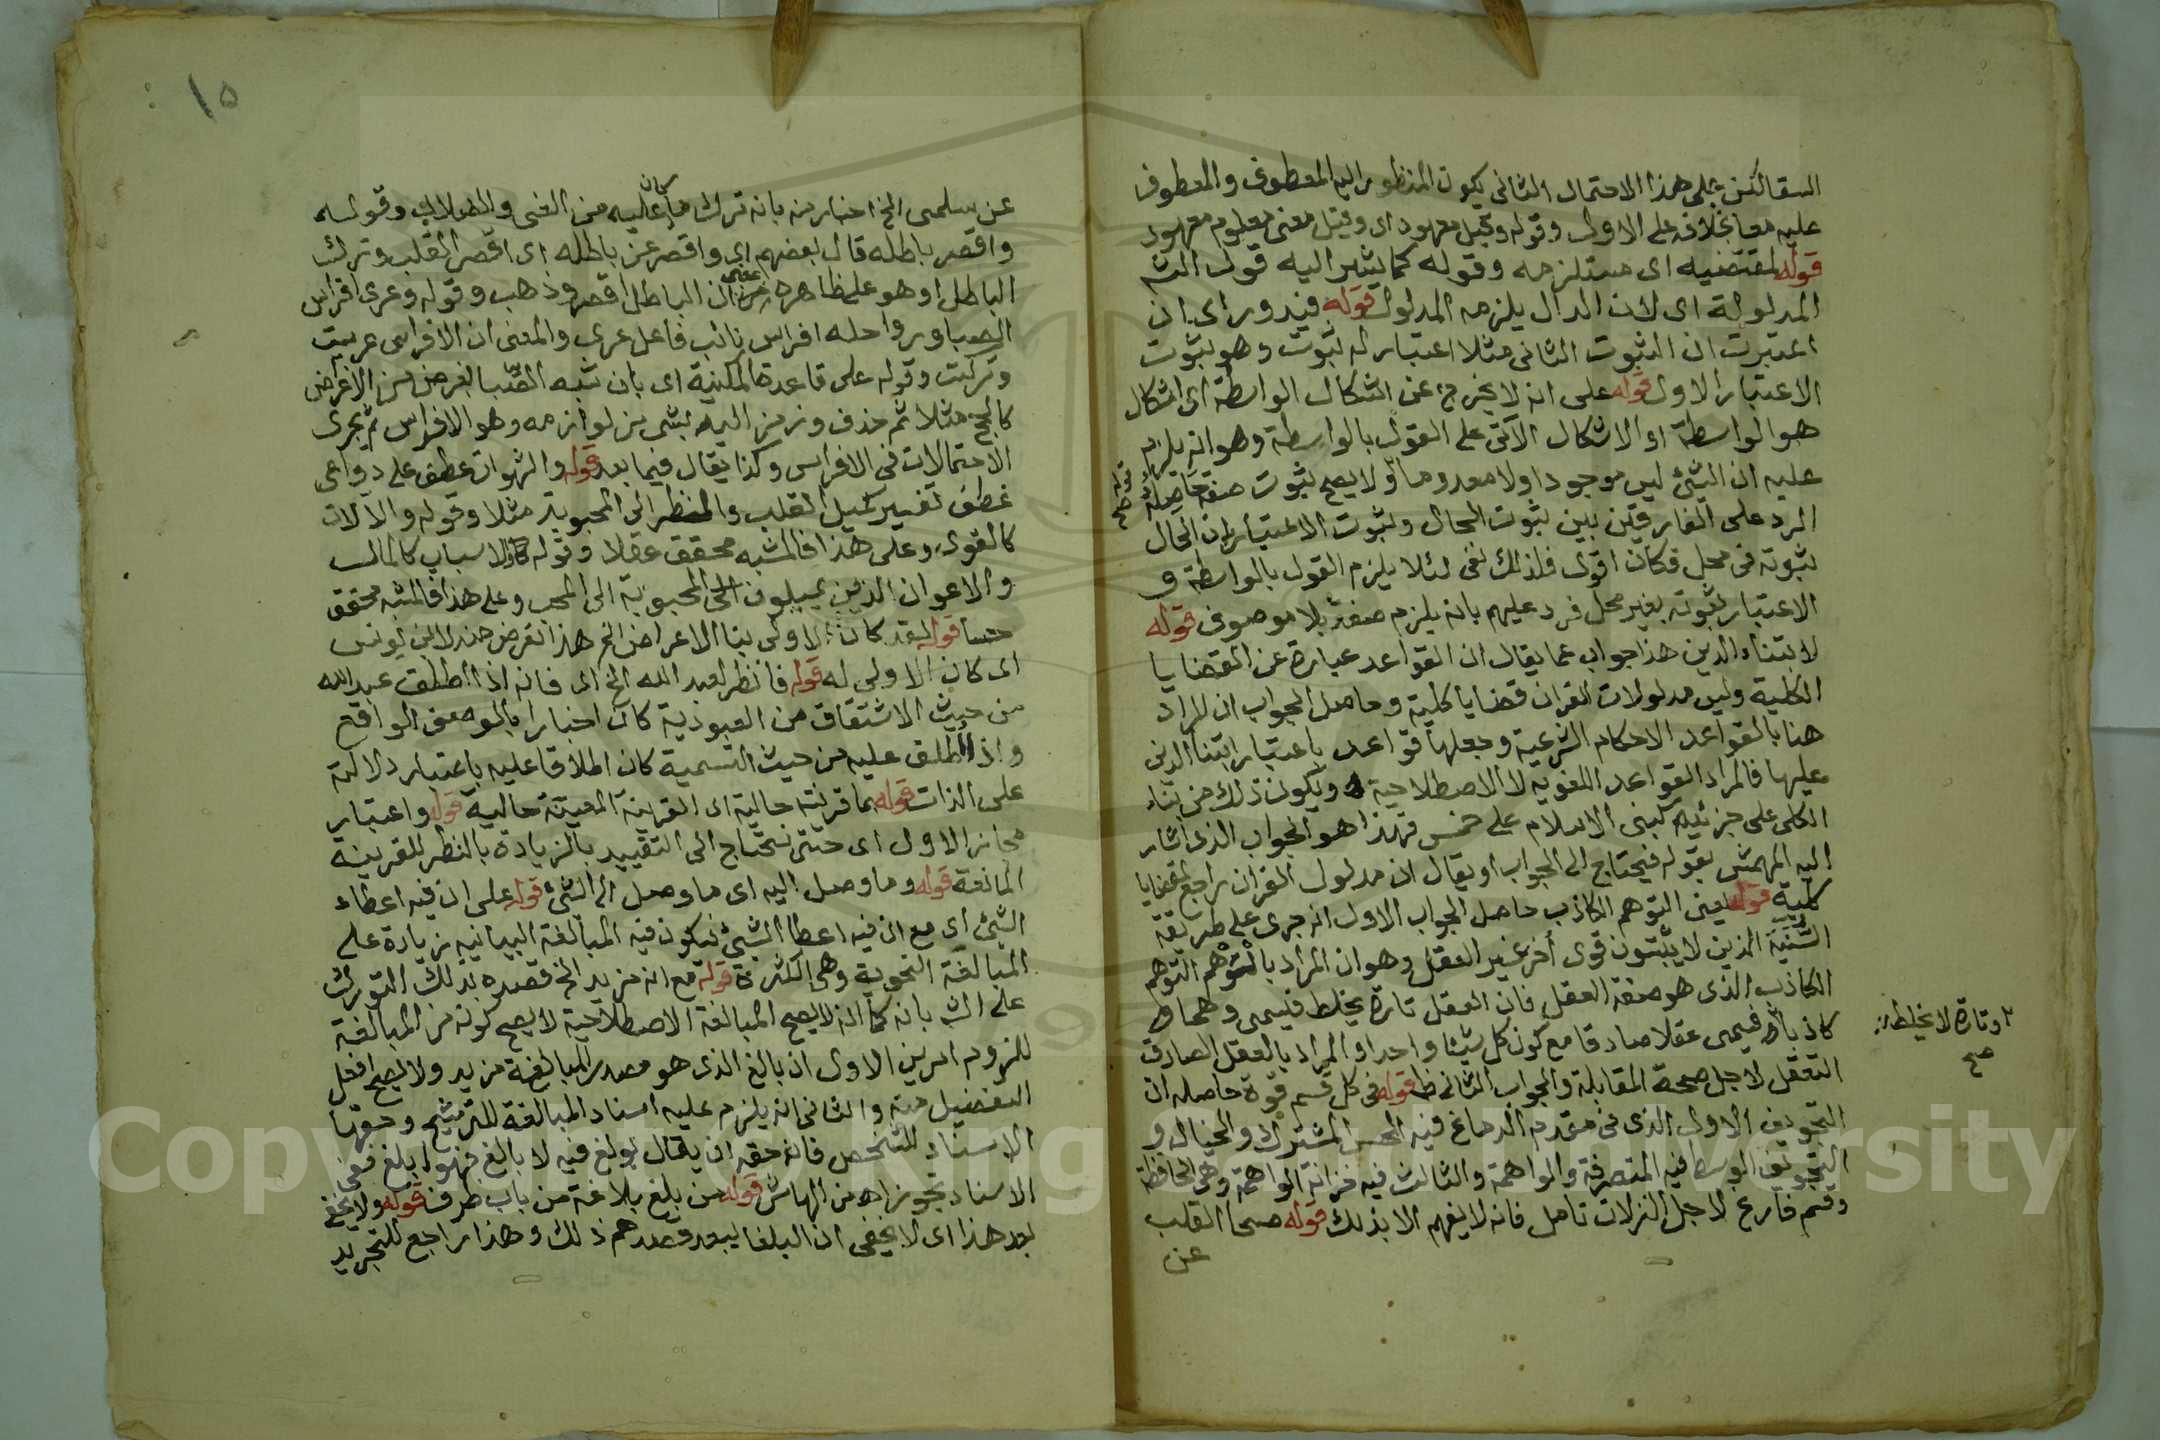 السقالتين على هذا الاحتمال الثاني يكون المنظور اليه المعطوف والمعطوف
عليه معا بخلافه على الاول وقوله وقيل معهود اى وقيل معنى معلوم معهود
قوله لمقتضيه اى مستلزمه وقوله كما يشير اليه قول الش
المدلولة اى لان الدال يلزمه المدلول قوله فيدور اى ان
اعتبرت ان الثبوت الثانى مثلا اعتبار له ثبوت وهو ثبوت
الاعتبار الاول قوله على انه لا يخرج عن اشكال الواسطة اى اشكال
هو الواسطة او الاشكال الآتى على القول بالواسطة وهو انه يلزم
عليه ان الشئ ليس موجودا ولا معدوما ولا يصح ثبوت صفة
الرد على الفارقين بين ثبوت الحال وثبوت الاعتبار ان الحال
ثبوته فى محل فكان اقوى فلذلك نفى لئلا يلزم القول بالواسطة و
الاعتبار ثبوته بغير محل فرد عليهم بانه يلزم صفة بلا موصوف قوله
لابتناء الدين هذا جواب عما يقال ان القواعد عبارة عن القضايا
الكلية وليس مدلولات القران قضايا كلية وحاصل الجواب ان المراد
هنا بالقواعد الاحكام الشرعية وجعلها قواعد باعتبار ابتنا الدين
عليها فالمراد القواعد اللغويه لا الاصطلاحية ويكون ذلك من بناء
الكلى على جزئيه كبنى الاسلام على خمس فهذا هو الجواب الذى اشار
اليه المهمش بقوله فيحتاج الى الجواب او يقال ان مدلول القران راجع لقضايا
كلية قوله يعنى التوهم الكاذب حاصل الجواب الاول انه جرى على طريقة
السنية الذين لا يثبتون قوى أخر غير العقل وهو ان المراد بالتوهم التوهم
الكاذب الذى هو صفة العقل فان العقل تارة يخلط فيسمى وهما و
كاذبا فيسمى عقلا صادقا مع كون كل شيئا واحدا والمراد بالعقل الصادق
التعقل لاجل صحة المقابلة والجواب الثانى ظ قوله فى كل قسم قوة حاصله ان
التجويف الاول الذى فى مقدم الدماغ فيه الحس المشترك والخيال و
التجويف الوسط فيه المتصرفة والواهمة والثالث فيه خزانة الواهمة وهى الحافظة
وقسم فارغ لاجل النزلات تامل فانه لا يفهم الا بذلك قوله صحا القلب
عن
٢ وتارة لا يخلط
صح
١٥
عن سلمى الخ اخبار منه بانه ترك ما كان عليه من الغى والضلال وقوله
واقصر باطله قال بعضهم اى واقصر عن باطله اى اقصر القلب وترك
الباطل او هو على ظاهره اعنى ان الباطل اقصر وذهب وقوله وعرى افراس
الصبا ورواحله افراس نائب فاعل عرى والمعنى ان الافراس عريت
وتركت وقوله على قاعدة المكنية اى بان شبه الصبا بغرض من الاغراض
كالحج مثلا ثم حذف ورمز اليه بشى من لوازمه وهو الافراس ثم يجرى
الاحتمالات فى الافراس وكذا يقال فيما بعد قوله والشهوات عطف على دواعى
عطف تفسير كميل القلب والنظر الى المحبوبة مثلا وقوله والآلات
كالقوى وعلى هذا فالمشبه محقق عقلا وقوله كالاسباب كالمال
والاعوان الذين يميلون المحبوبة الى المحب وعلى هذا فالمشبه محقق
حسا قوله لقد كان الاولى بنا الاعراض الخ هذا تعريض منه لابن يونس
اى كان الاولى له قوله فانظر لعبد الله الخ اى فانه اذا اطلق عبد الله
من حيث الاشتقاق من العبودية كان اخبارا بالوصف الواقع
واذا اطلق عليه من حيث التسمية كان اطلاقا عليه باعتبار دلالته
على الذات قوله مما قرينته حالية اى القرينة المعينة حالية قوله واعتبار
مجاز الاول اى حتى تحتاج الى التقييد بالزيادة بالنظر للقرينة
المانعة قوله وما وصل اليه اى ما وصل الى الشئ قوله على ان فيه اعطاء
الشئ اى مع ان فيه اعطا الشئ فيكون فيه المبالغة البيانيه زيادة على
المبالغة النحوية وهى الكثرة قوله مع انه مزيد الخ قصده بذلك التورك
على الش بانه كما انه لا يصح المبالغة الاصطلاحية لا يصح كونه من المبالغة
للزوم امرين الاول ان بالغ الذى هو مصدر المبالغة مزيد ولا يصح افعل
التفضيل منه والثانى انه يلزم عليه اسناد المبالغة للترشيح وحقها
الاسناد للشخص فانه حقه ان يقال بولغ فيه لا بالغ فهو ابلغ ففى
الاسناد تجوز اه من الهامش قوله من بلغ بلاغة من باب ظرف قوله ولا يخفى
بعد هذا اى لا يخفى ان البلغا يبعد قصدهم ذلك وهذا راجع للتجريد
Copyright © King Saud University